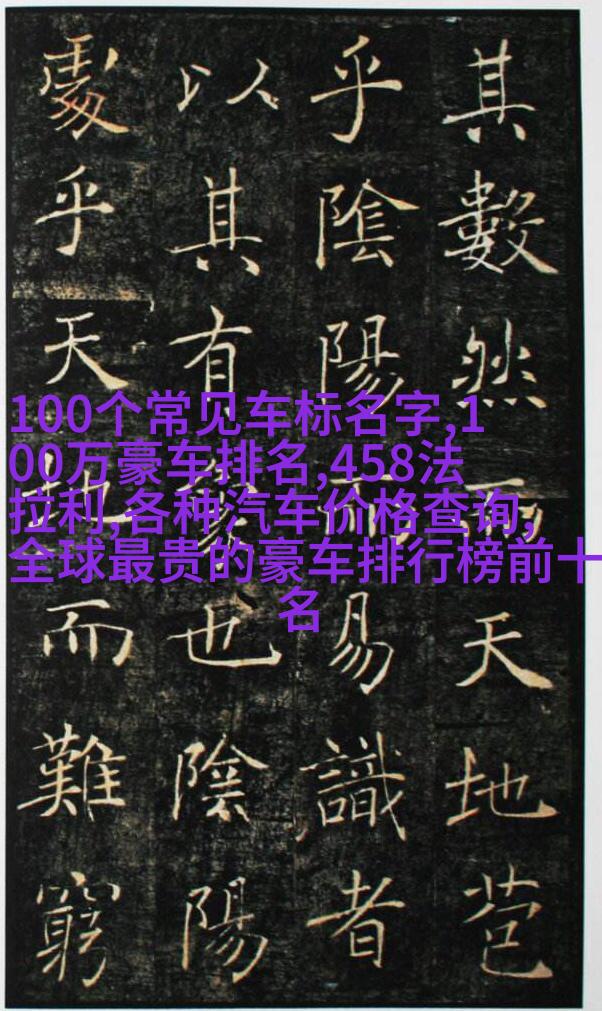 其數然而天地苞
乎陰陽而易識者
以其有象也陰陽
處乎天地而難窮
100个常见车标名字,1
00万豪车排名,458法
拉利,各种汽车价格查询,
全球最贵的豪车排行榜前十
名